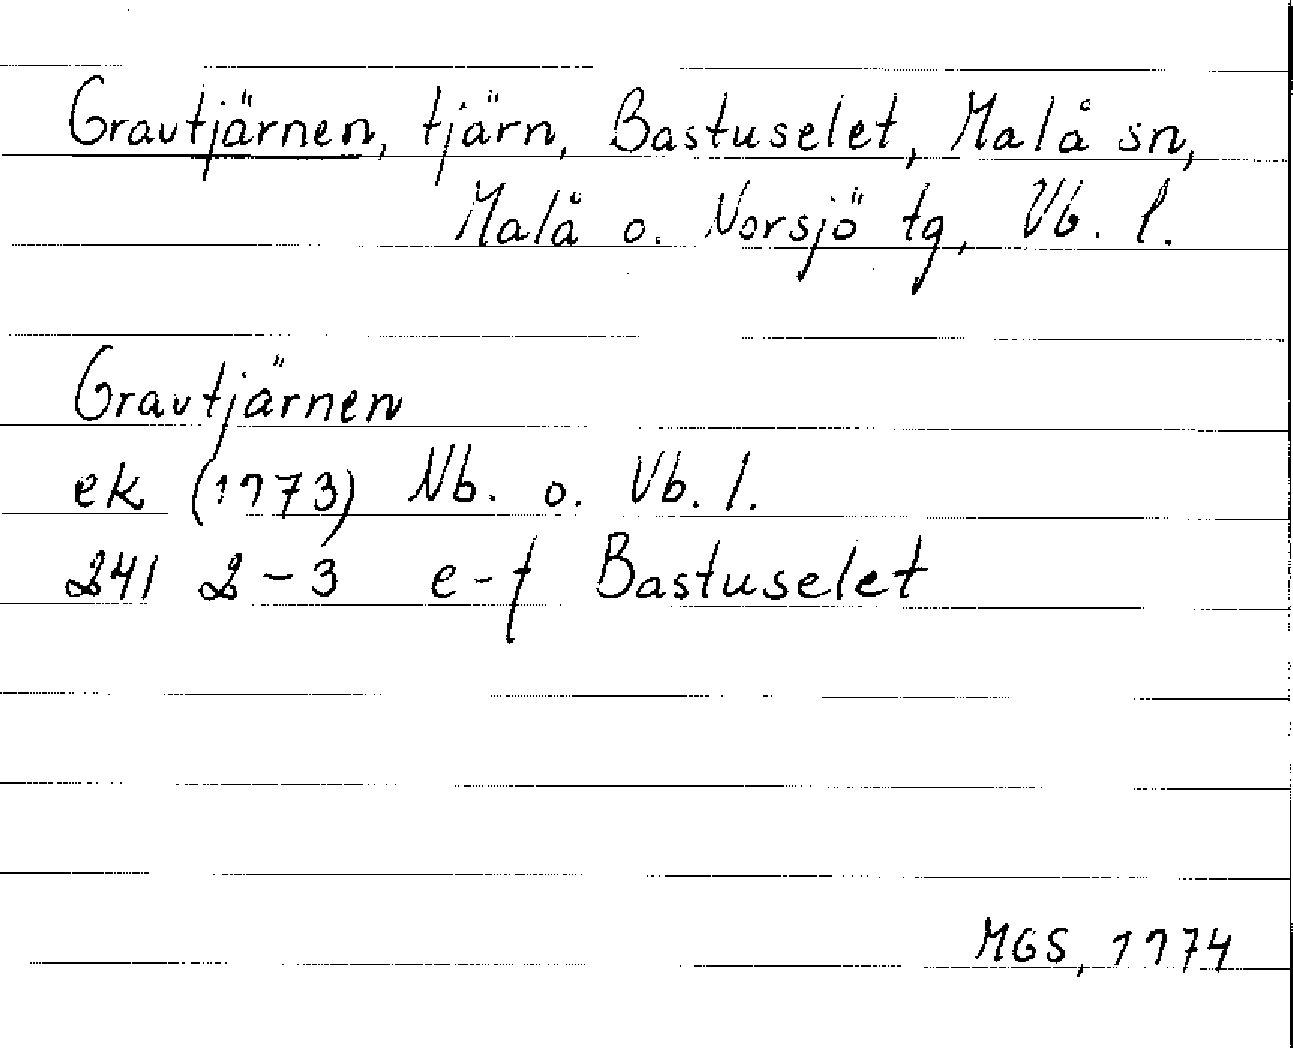 Gravtjärnen, tjärn, Bastuselet, Malå sn,
Malå o. Norsjö tg, Vb. l.
Gravtjärnen
ek (1973) Nb. o. Vb. l.
241 2-3 e-f Bastuselet
MGS, 1974